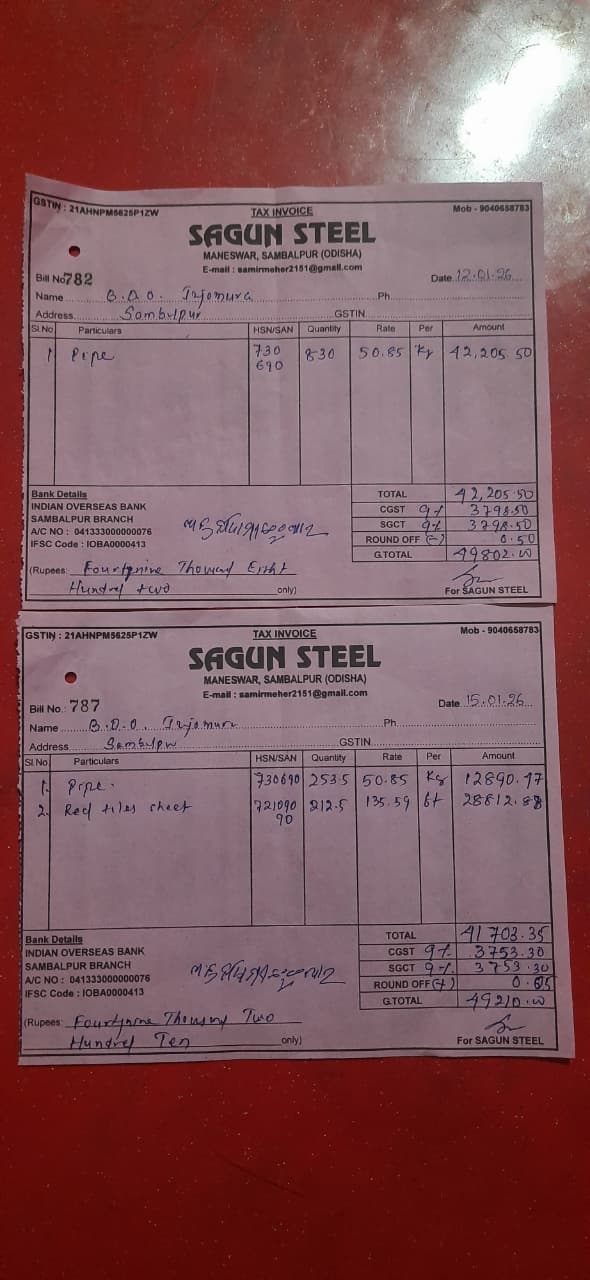 GSTIN : 21AHNPM5625P1ZW TAX INVOICE Mob - 9040658783
SAGUN STEEL
MANESWAR, SAMBALPUR (ODISHA)
E-mail : samirmeher2151@gmail.com
Bill No 782 Date 12.01.26
Name B.D.O. Ph
Address Sambulpur GSTIN
Sl.No Particulars HSN/SAN Quantity Rate Per Amount
1 Pipe 730 830 50.85 Kg 42,205.50
690
Bank Details TOTAL 42,205.50
INDIAN OVERSEAS BANK CGST 9% 3798.50
SAMBALPUR BRANCH SGCT 9% 3798.50
A/C NO : 041333000000076 ROUND OFF (-) 0.50
IFSC Code : IOBA0000413 G.TOTAL 49802.00
(Rupees: Fourtynine Thousand Eight
Hundred two only) For SAGUN STEEL
GSTIN : 21AHNPM5625P1ZW TAX INVOICE Mob - 9040658783
SAGUN STEEL
MANESWAR, SAMBALPUR (ODISHA)
E-mail : samirmeher2151@gmail.com
Bill No.: 787 Date 15.01.26
Name B.D.O. Ph
Address Sambulpur GSTIN
Sl No Particulars HSN/SAN Quantity Rate Per Amount
1. Pipe. 730690 253.5 50.85 Kg 12890.47
2. Red tiles sheet 721090 212.5 135.59 ft 28812.88
90
Bank Details TOTAL 41703.35
INDIAN OVERSEAS BANK CGST 9% 3753.30
SAMBALPUR BRANCH SGCT 9% 3753.30
A/C NO : 041333000000076 ROUND OFF (+)
IFSC Code : IOBA0000413 G.TOTAL 49210.00
(Rupees: Fourtynine Thousand Two
Hundred Ten only) For SAGUN STEEL